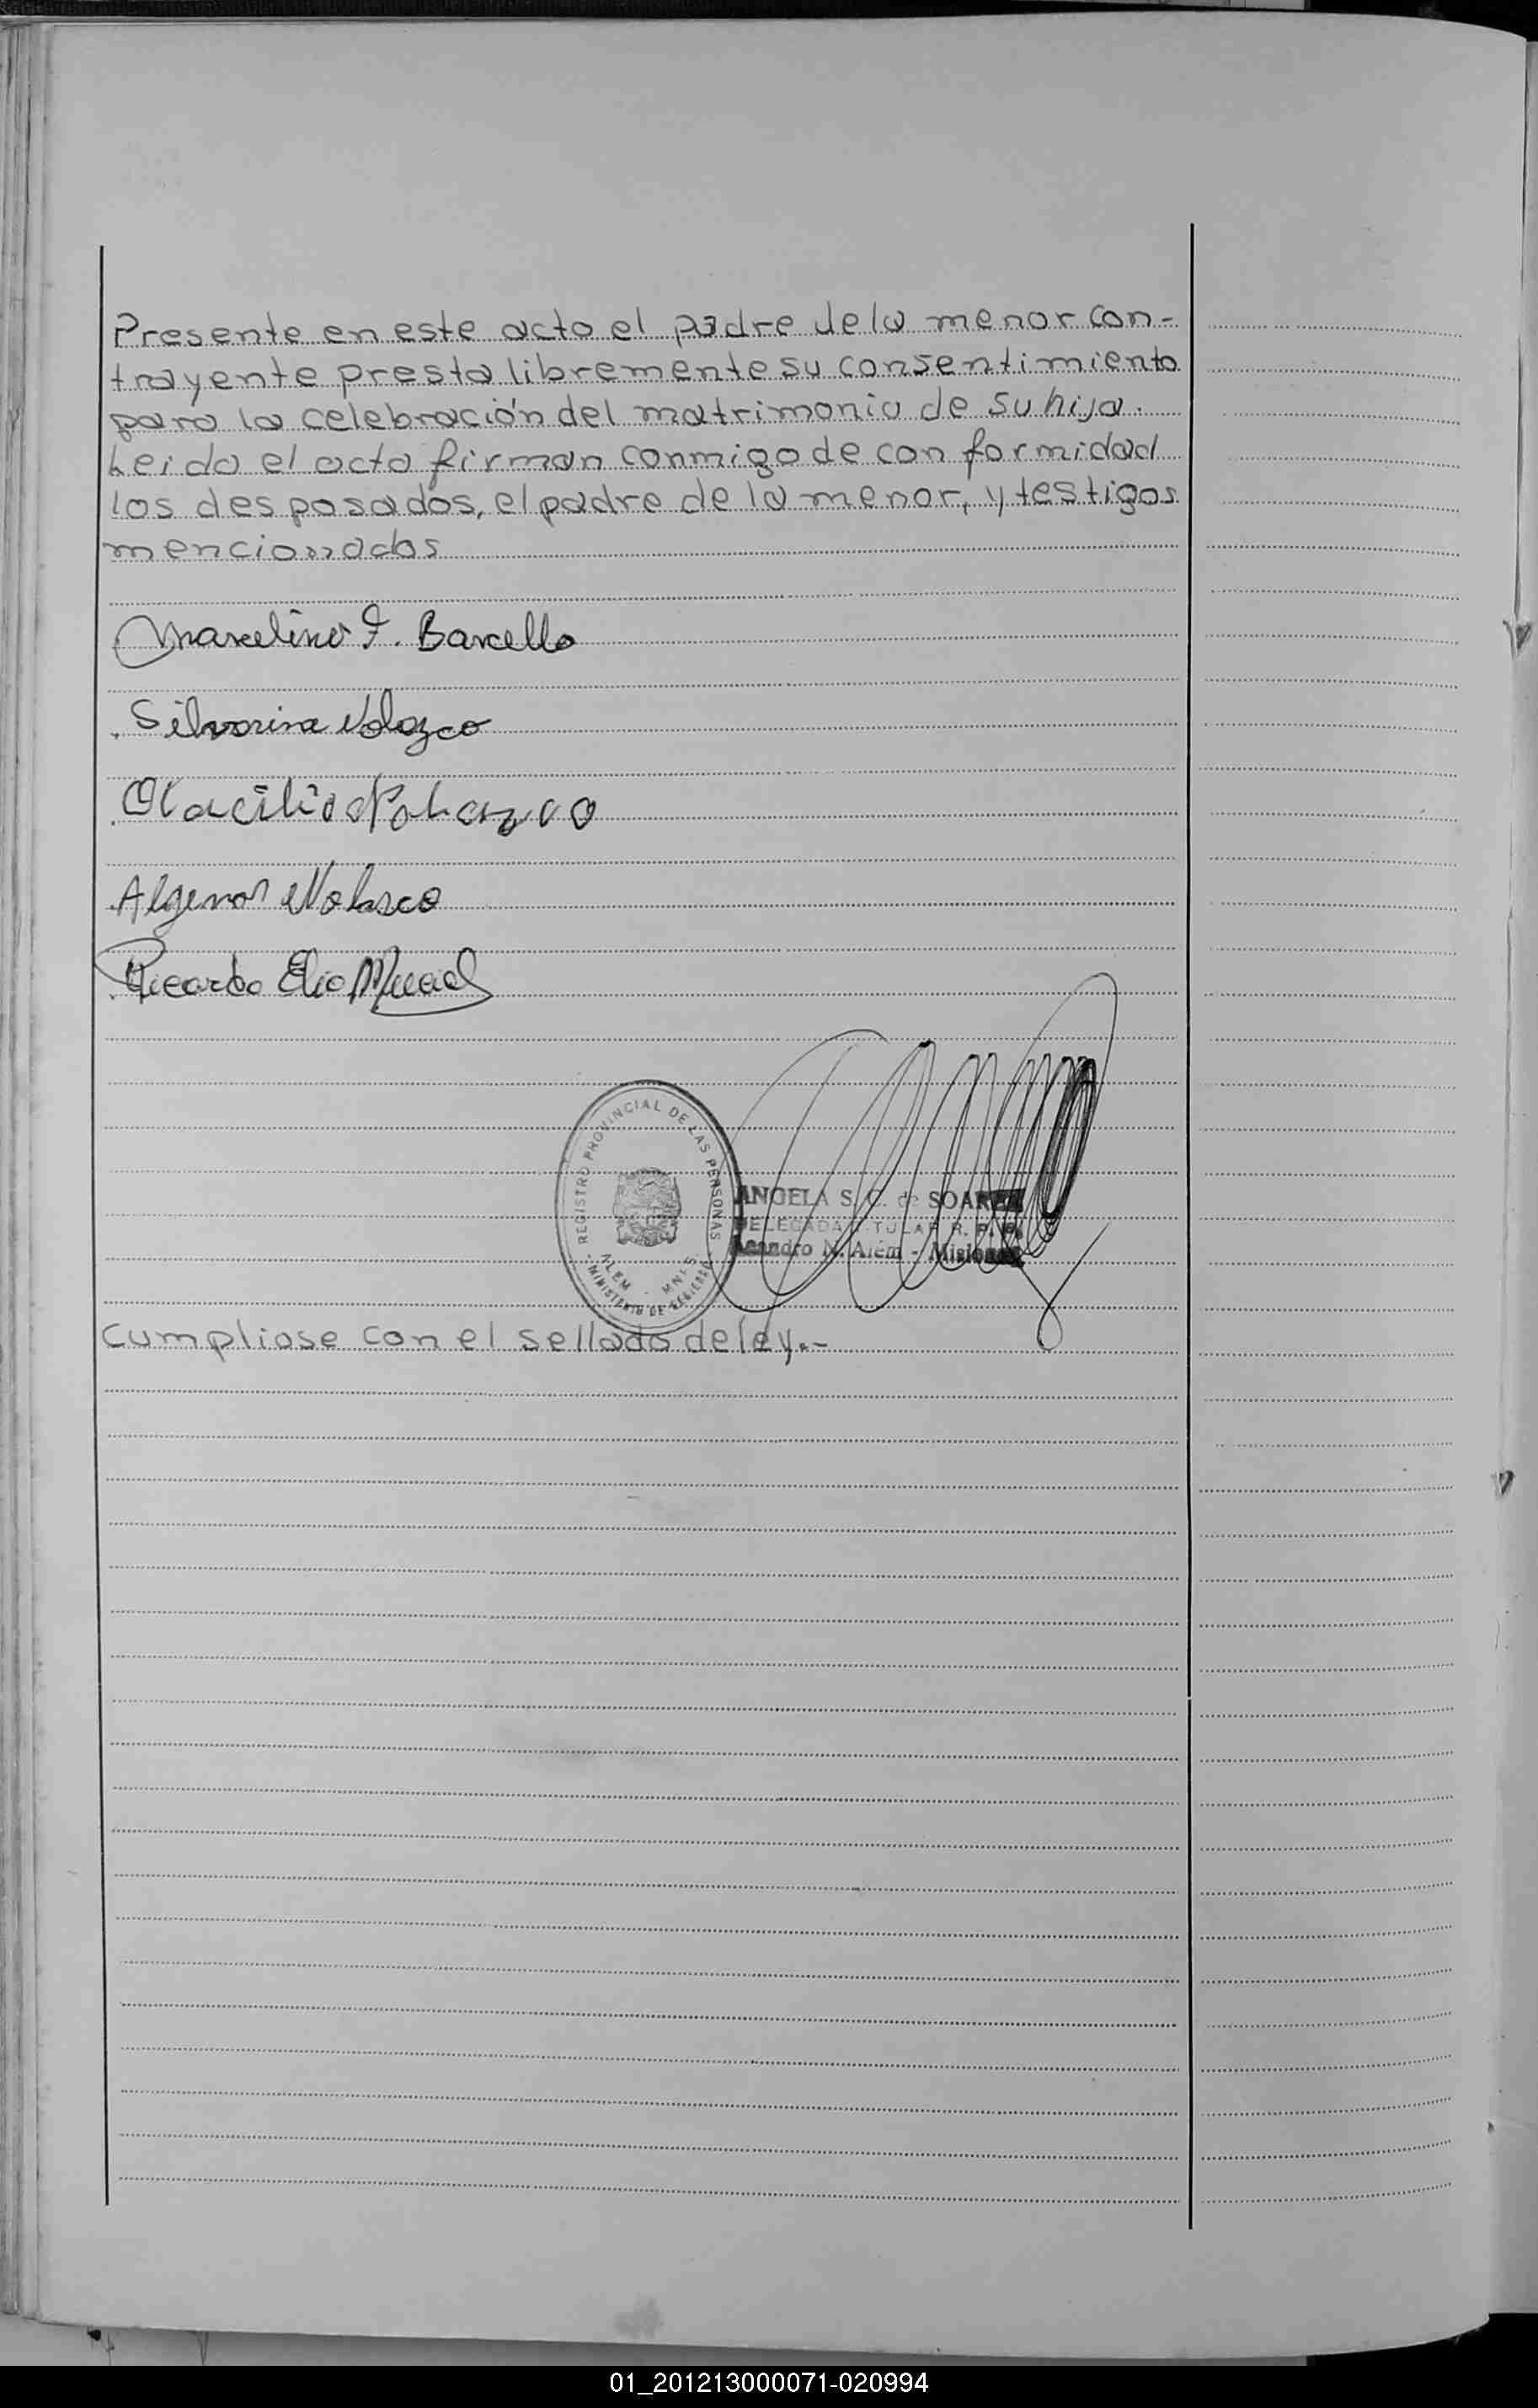 Presente en este acto el padre de la menor con-
trayente presta libremente su consentimiento
para la celebración del matrimonio de su hija.
Leido el acta firman conmigo de conformidad
los desposados, el padre de la menor, y testigos
mencionados
Marcelino F. Barcello
Silvorina Nolazco
Otacilio Nolazco
Algenor Nolasco
Ricardo Elio
REGISTRO PROVINCIAL DE LAS PERSONAS
ALEM - MNES
MINISTERIO DE GOBIERNO
ANGELA S. C. de SOAREZ
DELEGADA TITULAR R. P. P.
Leandro N. Além - Misiones
Cumpliose con el sellado de ley.-
01_201213000071-020994